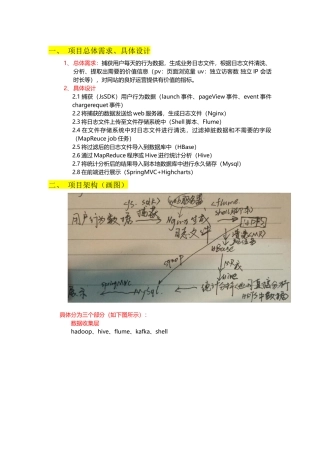 一、 项目总体需求、具体设计
1、总体需求：捕获用户每天的行为数据，生成业务日志文件，根据日志文件清洗、
分析、提取出需要的价值信息（pv：页面浏览量 uv：独立访客数 独立 IP 会话
时长等），对网站的良好运营提供有价值的指标。
2、具体设计
2.1 捕获（JsSDK）用户行为数据（launch 事件、pageView 事件、event 事件
chargerequet 事件）
2.2 将捕获的数据发送给 web 服务器，生成日志文件（Nginx）
2.3 将日志文件上传至文件存储系统中（Shell 脚本、Flume）
2.4 在文件存储系统中对日志文件进行清洗，过滤掉脏数据和不需要的字段
（MapReuce job 任务）
2.5 将过滤后的日志文件导入到数据库中（HBase）
2.6 通过 MapReduce 程序或 Hive 进行统计分析（Hive）
2.7 将统计分析后的结果导入到本地数据库中进行永久储存（Mysql）
2.8 在前端进行展示（SpringMVC+Highcharts）
二、 项目架构（画图）
(js. sdk) web服务器 flume
用户行为数据 Nginx 生成 shell脚本
日志文件
HBase
sqoop
MR或
hive
SpringMVC
展示 MySQL 统计分析
具体分为三个部分（如下图所示）：
数据收集层
hadoop、hive、flume、kafka、shell